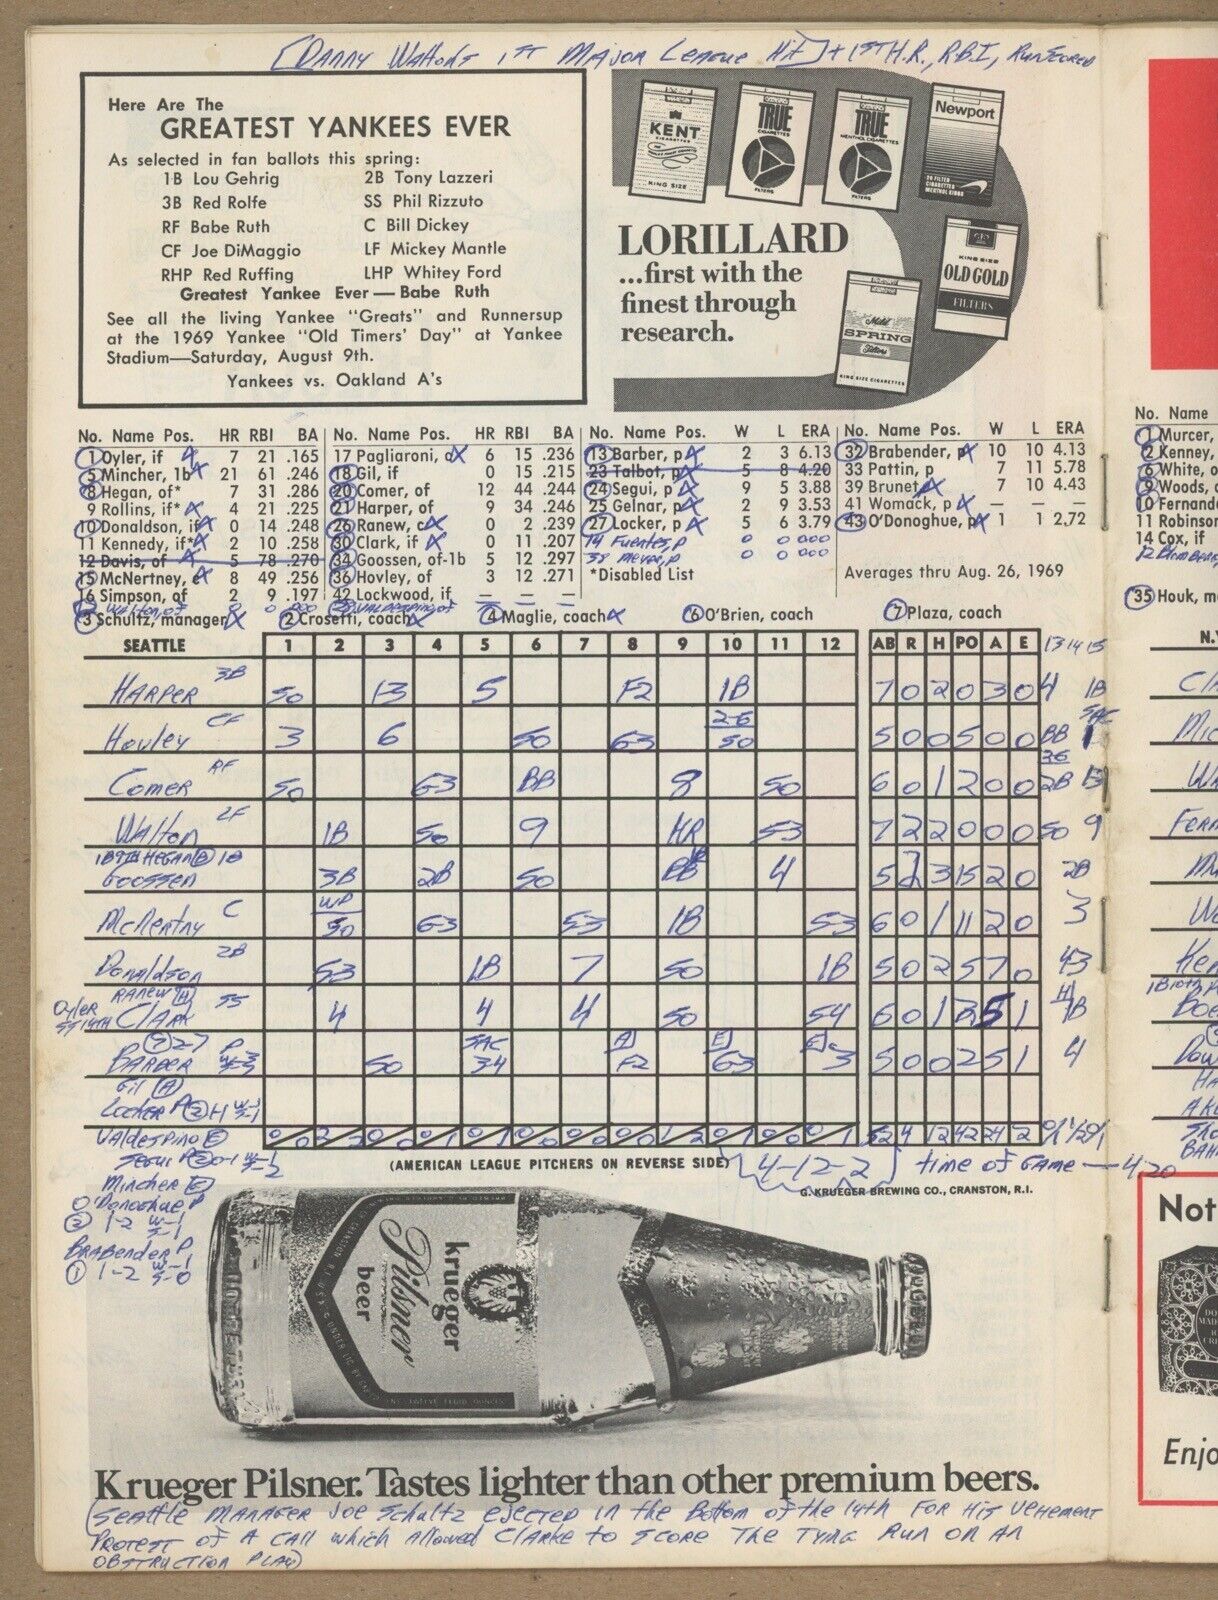 [Danny Walton's 1ST Major League Hit] + 1ST H.R., R.B.I., Run Scored
Here Are The
GREATEST YANKEES EVER
As selected in fan ballots this spring:
1B Lou Gehrig 2B Tony Lazzeri
3B Red Rolfe SS Phil Rizzuto
RF Babe Ruth C Bill Dickey
CF Joe DiMaggio LF Mickey Mantle
RHP Red Ruffing LHP Whitey Ford
Greatest Yankee Ever — Babe Ruth
See all the living Yankee "Greats" and Runnersup
at the 1969 Yankee "Old Timers' Day" at Yankee
Stadium—Saturday, August 9th.
Yankees vs. Oakland A's
KENT
KING SIZE
TRUE
CIGARETTES
FILTERS
TRUE
MENTHOL CIGARETTES
FILTERS
Newport
LORILLARD
...first with the
finest through
research.
KING SIZE
OLD GOLD
FILTERS
Mild
SPRING
Filters
KING SIZE CIGARETTES
No. Name Pos. HR RBI BA
1 Oyler, if 7 21 .165
5 Mincher, 1b 21 61 .246
8 Hegan, of* 7 31 .286
9 Rollins, if* 4 21 .225
10 Donaldson, if 0 14 .248
11 Kennedy, if* 2 10 .258
12 Davis, of 5 78 .270
15 McNertney, c 8 49 .256
16 Simpson, of 2 9 .197
Walton, of 0 0 .000
No. Name Pos. HR RBI BA
17 Pagliaroni, c 6 15 .236
18 Gil, if 0 15 .215
20 Comer, of 12 44 .244
21 Harper, of 9 34 .246
26 Ranew, c 0 2 .239
30 Clark, if 0 11 .207
34 Goossen, of-1b 5 12 .297
36 Hovley, of 3 12 .271
42 Lockwood, if — — —
Valdespino, of
No. Name Pos. W L ERA
13 Barber, p 2 3 6.13
23 Talbot, p 5 8 4.20
24 Segui, p 9 5 3.88
25 Gelnar, p 2 9 3.53
27 Locker, p 5 6 3.79
14 Fuentes, p 0 0 0.00
38 Meyer, p 0 0 0.00
*Disabled List
No. Name Pos. W L ERA
32 Brabender, p 10 10 4.13
33 Pattin, p 7 11 5.78
39 Brunet, p 7 10 4.43
41 Womack, p — — —
43 O'Donoghue, p 1 1 2.72
Averages thru Aug. 26, 1969
3 Schultz, manager 2 Crosetti, coach 4 Maglie, coach 6 O'Brien, coach 7 Plaza, coach
SEATTLE 1 2 3 4 5 6 7 8 9 10 11 12 AB R H PO A E 13 14 15
HARPER 3B SO 13 5 F2 1B 7 0 2 0 3 0 4 1B
SAC
Hovley CF 3 6 SO 63 26 SO 5 0 0 5 0 0 BB 1
Comer RF SO 63 BB 8 SO 6 0 1 2 0 0 2B
Walton LF 1B SO 9 HR 53 7 2 2 0 0 0 SO 9
1B 9TH HEGAN B 1B
Goossen 3B 2B SO BB 4 5 2 3 15 2 0 2B
McNertny C WP SO 63 53 1B 53 6 0 1 11 2 0 3
Donaldson 2B 53 1B 7 SO 1B 5 0 2 5 7 0 43
RANEW H
OYLER
SS 14TH Clark SS 4 4 4 SO 54 6 0 1 2 5 1 1B
BARBER P SO SAC 34 A F2 E 63 3 5 0 0 2 5 1 4
Gil A
Locker P
Valdespino E
Segui P
52 4 12 42 24 2
(AMERICAN LEAGUE PITCHERS ON REVERSE SIDE)
4-12-2 time of Game — 4:20
G. KRUEGER BREWING CO., CRANSTON, R.I.
Mincher G
O'Donoghue P
2 1-2 W-1
S-1
BRABender P
1 1-2 W-1
S-0
krueger
Pilsner
beer
Krueger Pilsner. Tastes lighter than other premium beers.
(Seattle Manager Joe Schultz ejected in the Bottom of the 14th for his vehement
Protest of a call which allowed Clarke to score the tying run on an
OBSTRUCTION PLAY)
No. Name
1 Murcer,
2 Kenney,
6 White, o
9 Woods, o
10 Fernand
11 Robinson
14 Cox, if
35 Houk, m
N.Y
Not
Enjo